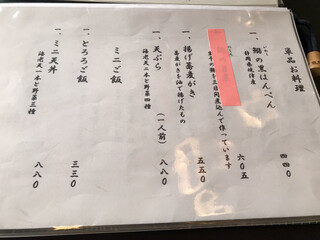 単品お料理
一、鯛の黒はんぺん 四四〇
静岡県焼津産
生干の鰊を三日間炊込んで作っています 六〇五
一、揚げ蕎麦がき 五五〇
蕎麦がきを油で揚げたもの
一、天ぷら (一人前) 八八〇
海老天二本と野菜四種
ミニご飯
一、とろろご飯 三三〇
一、ミニ天丼 八八〇
海老天一本と野菜三種